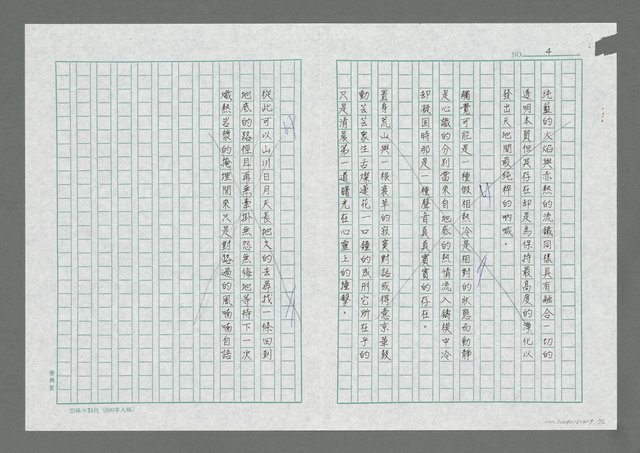 NO. 4
純藍的火焰與赤熱的流鐵同樣具有融合一切的
透明本質但其存在卻是為保持最高度的淨化以
發出天地間最純粹的吶喊。
觸覺可能是一種假相熱冷是相對的狀態而動靜
是心識的分別當來自地底的熱情流入鑄模中冷
卻凝固時那是一種聲音真真實實的存在。
置身荒山與一根衰草的寂寞對話或佇
動芸芸眾生古燦蓮花一口鐘的成形它所在乎的
只是清晨第一道曙光在心靈上的撞擊。
從此可以山川日月天長地久的去尋找一條回到
地底的路徑且再無牽掛無怨無悔地等待下一次
熾熱岩漿的掩埋閒來只是對路過的風喃喃自語
25格×24行（600字大格）